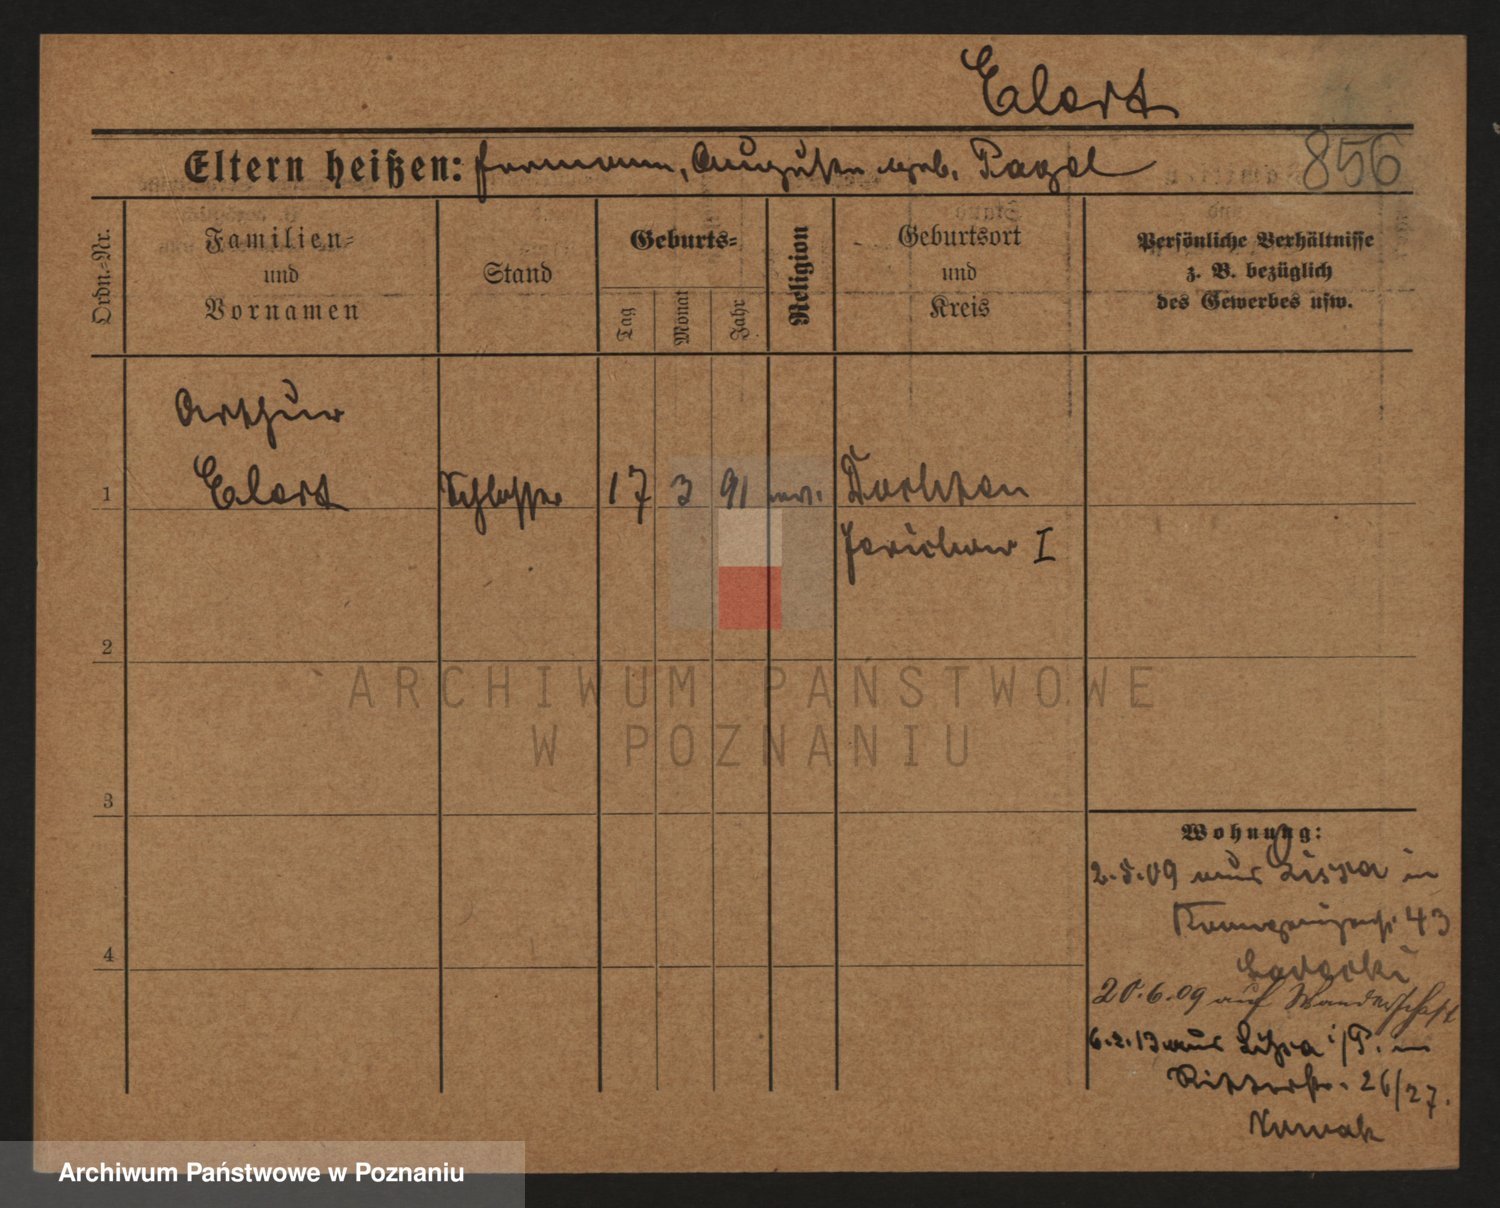 Elert
Eltern heißen: Hermann, Auguste geb. Pagel
856
Ordn.-Nr.
Familien-
und
Vornamen
Stand
Geburts-
Tag
Monat
Jahr
Religion
Geburtsort
und
Kreis
Persönliche Verhältnisse
z. B. bezüglich
des Gewerbes usw.
Arthur
1 Elert Schlosser 17 3 91 ev.
Jerichow I
2
ARCHIWUM PAŃSTWOWE
W POZNANIU
3
Wohnung:
2.5.09 aus Lissa in
43
20.6.09 auf Wanderschaft
6.2.13 aus Lissa i/P. in
Ritterstr. 26/27.
Nowak
4
Archiwum Państwowe w Poznaniu